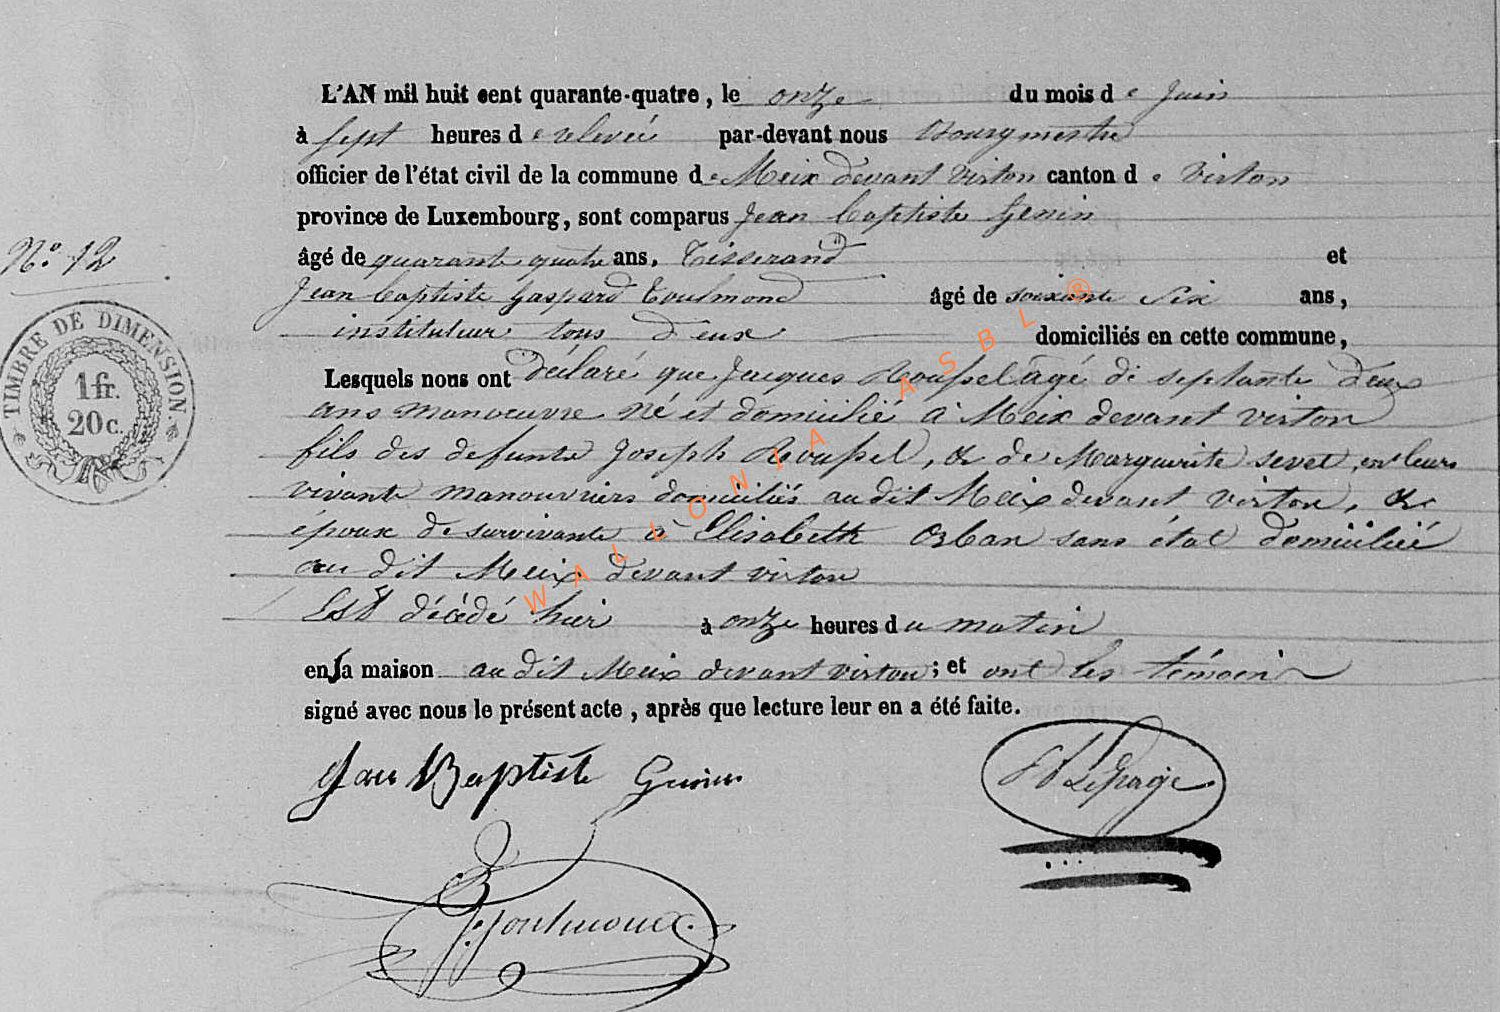 L'AN mil huit cent quarante-quatre, le onze du mois de Juin
à sept heures de relevée par-devant nous Bourgmestre
officier de l'état civil de la commune de Meix devant virton canton de Virton
province de Luxembourg, sont comparus Jean Baptiste Genin
N.º 12
âgé de quarante quatre ans, Tisserand et
Jean Baptiste Gaspard Toulmond âgé de soixante six ans,
instituteur tous deux domiciliés en cette commune,
Lesquels nous ont déclaré que Jacques Roussel âgé de septante deux
ans manoeuvre né et domicilié à Meix devant virton
fils des defunts Joseph Roussel, & de Marguerite sevet, en leurs
vivants manouvriers domiciliés audit Meix devant virton, &
époux de survivante à Elisabeth Orban sans état domiciliée
au dit Meix devant virton
Est décédé hier à onze heures du matin
en sa maison au dit Meix devant virton; et ont les témoin
signé avec nous le présent acte, après que lecture leur en a été faite.
Jean Baptiste Genin
Lepage
Toulmond
TIMBRE DE DIMENSION
1 fr.
20 c.
WALLONIA ASBL ®